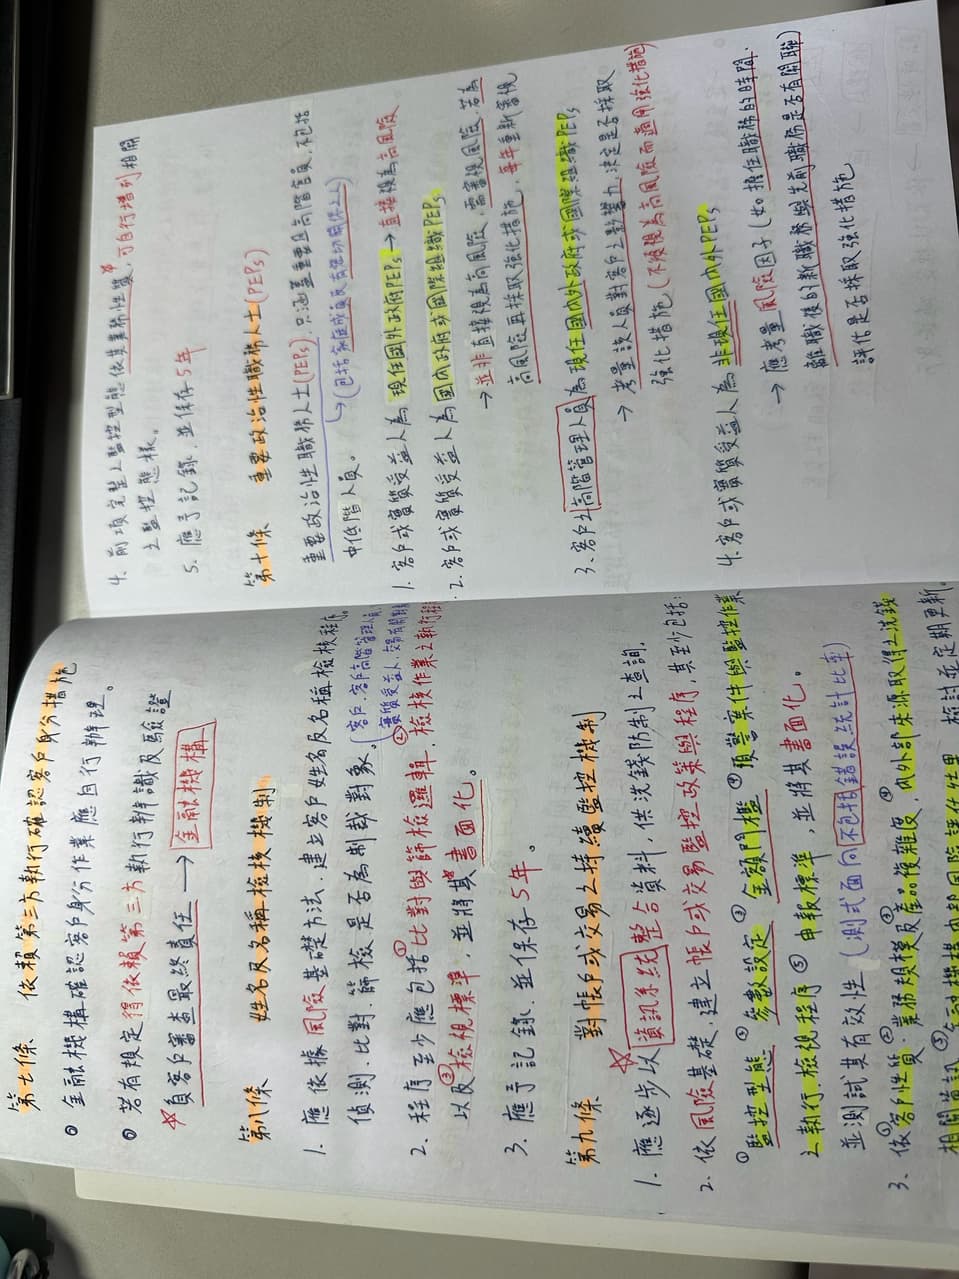 第七條 依賴第三方執行確認客戶身分措施
金融機構確認客戶身份作業應自行辦理。
若有規定得依賴第三方執行辨識及驗證
☆負客戶審查最終責任→金融機構
第八條 姓名及名稱檢核機制
1. 應依據風險基礎方法、建立客戶姓名及名稱檢核程序。
偵測、比對、篩檢是否為制裁對象。(客戶、客戶高階管理人員、
實質受益人、交易有關對象
2. 程序至少應包括①比對與篩檢邏輯、②檢核作業之執行程序
以及③檢視標準,並將其書面化。
3. 應予記錄、並保存5年。
第九條 對帳戶或交易之持續監控機制
1. 應逐步以☆資訊系統整合資料,供洗錢防制之查詢。
2. 依風險基礎,建立帳戶或交易監控政策與程序,其至少包括:
①監控型態②參數設定③金額門檻④預警案件與監控作業
之執行、檢視程序⑤申報標準,並將其書面化。
並測試其有效性(測試面向不包括錯誤統計比率)
3. 依①客戶性質、②業務規模及③產品複雜度、④內外部來源取得之洗錢
相關資訊、⑤ 檢討並定期更新。
4. 前項完整之監控型態依其業務性質,可自行增列相關
之監控態樣。
5. 應予記錄、並保存5年
第十條 重要政治性職務人士(PEPs)
重要政治性職務人士(PEPs),只涵蓋重要且高階官員,不包括
↳(包括家庭成員及有密切關係之人)
中低階人員。
1. 客戶或實質受益人為現任國外政府PEPs→直接視為高風險
2. 客戶或實質受益人為國內政府或國際組織PEPs
→並非直接視為高風險,需審視風險,若為
高風險再採取強化措施,每年重新審視
3. 客戶之高階管理人員為現任國內外政府或國際組織PEPs
→考量該人員對客戶之影響力,決定是否採取
強化措施。(不被視為高風險而適用強化措施)
4. 客戶或實質受益人為非現任國內外PEPs
→應考量風險因子(如擔任職務的時間、
離職後的新職務與先前職務是否有關聯)
評估是否採取強化措施